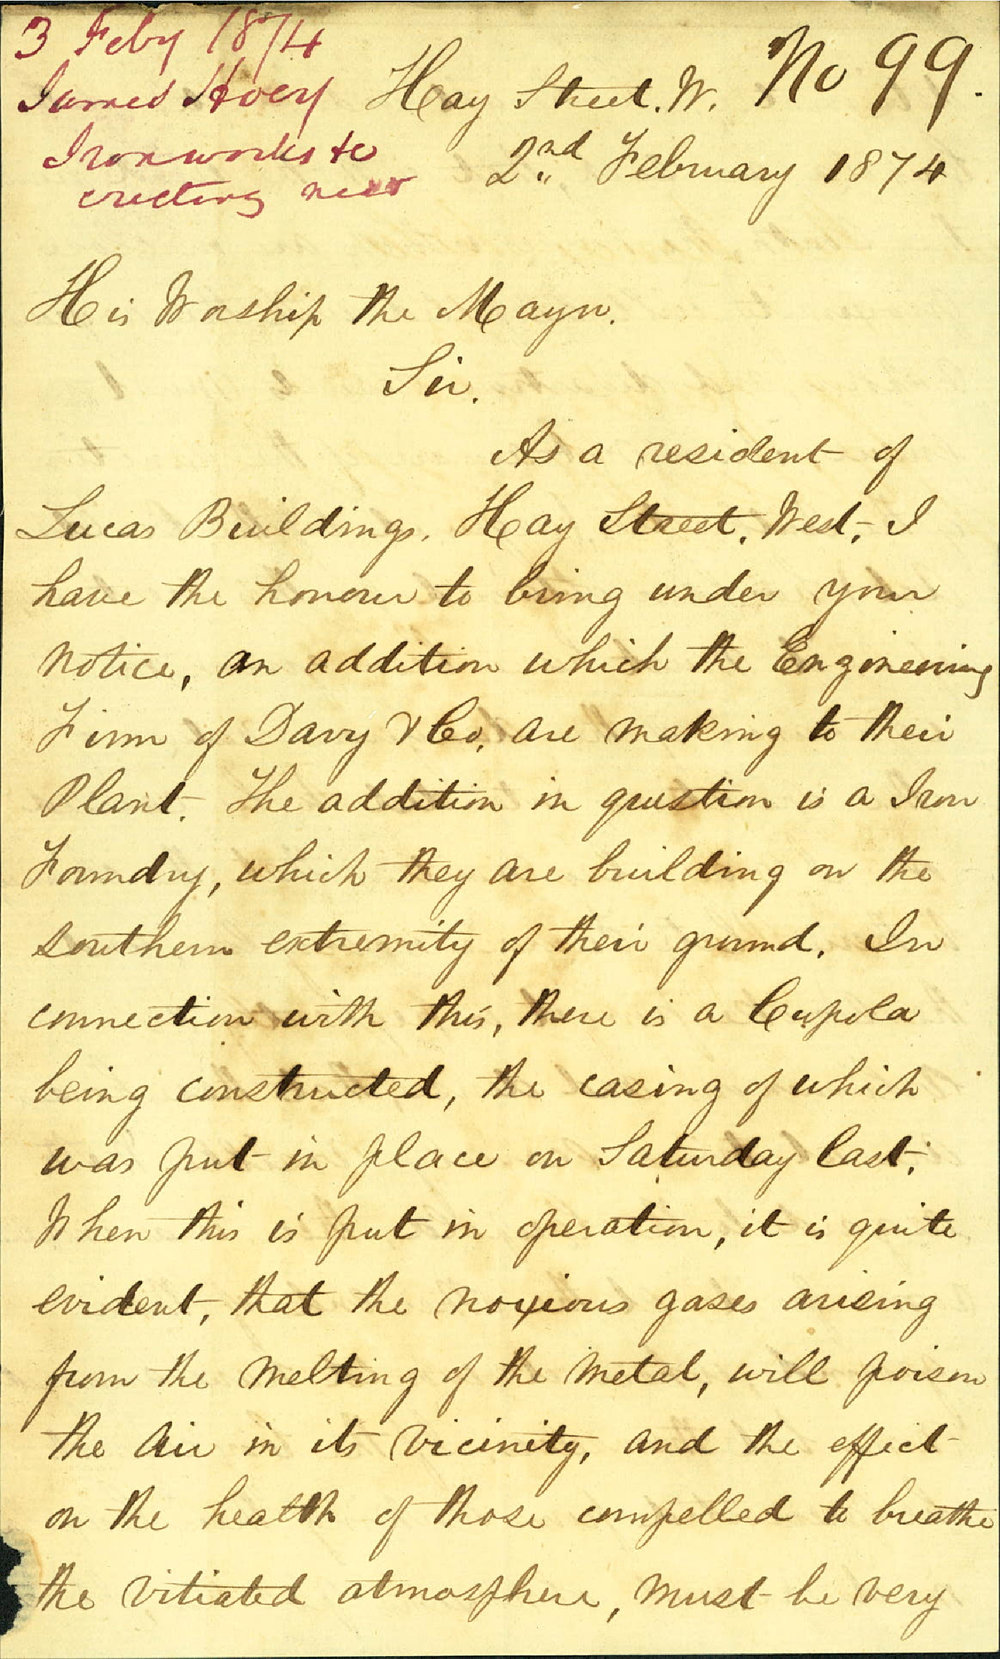 3 Feby 1874
James Hoey
Ironworks &c
erecting near
No 99.
Hay Street. W.
2nd February 1874
His Worship the Mayor.
Sir.
As a resident of
Lucas Buildings. Hay Street. West, I
have the honour to bring under your
notice, an addition which the Engineering
Firm of Davy & Co. are making to their
Plant. The addition in question is a Iron
Foundry, which they are building on the
southern extremity of their ground. In
connection with this, there is a Cupola
being constructed, the casing of which
was put in place on Saturday last.
When this is put in operation, it is quite
evident, that the noxious gases arising
from the melting of the metal, will poison
the air in its vicinity, and the effect
on the health of those compelled to breathe
the vitiated atmosphere, must be very